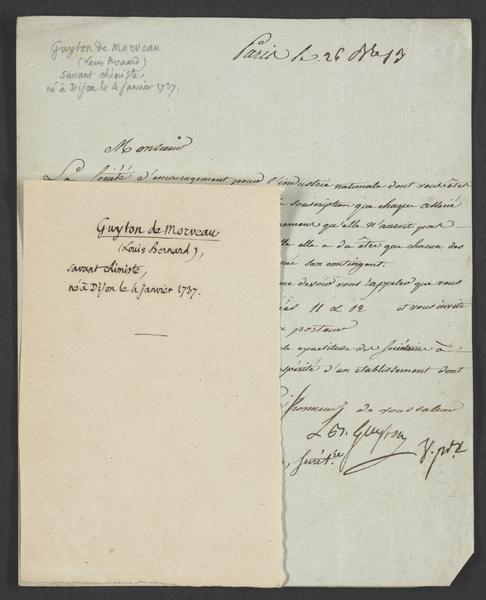 Guyton de Morveau
(Louis Bernard)
savant chimiste,
né à Dijon le 4 janvier 1737.
Paris le 26
Monsieur
La Société d'encouragement pour l'industrie nationale dont vous êtes
souscription que chaque associé
qu'elle n'auroit pas
elle a dû être que chacun des
son contingent.
devoir vous rappeler que vous
11 & 12 et vous invite
porteur
exactitude des Sociétaires à
d'un établissement dont
l'honneur de vous saluer
Guyton
V. pdt
Secrét.re
Guyton de Morveau
(Louis Bernard),
savant chimiste,
né à Dijon le 4 janvier 1737.